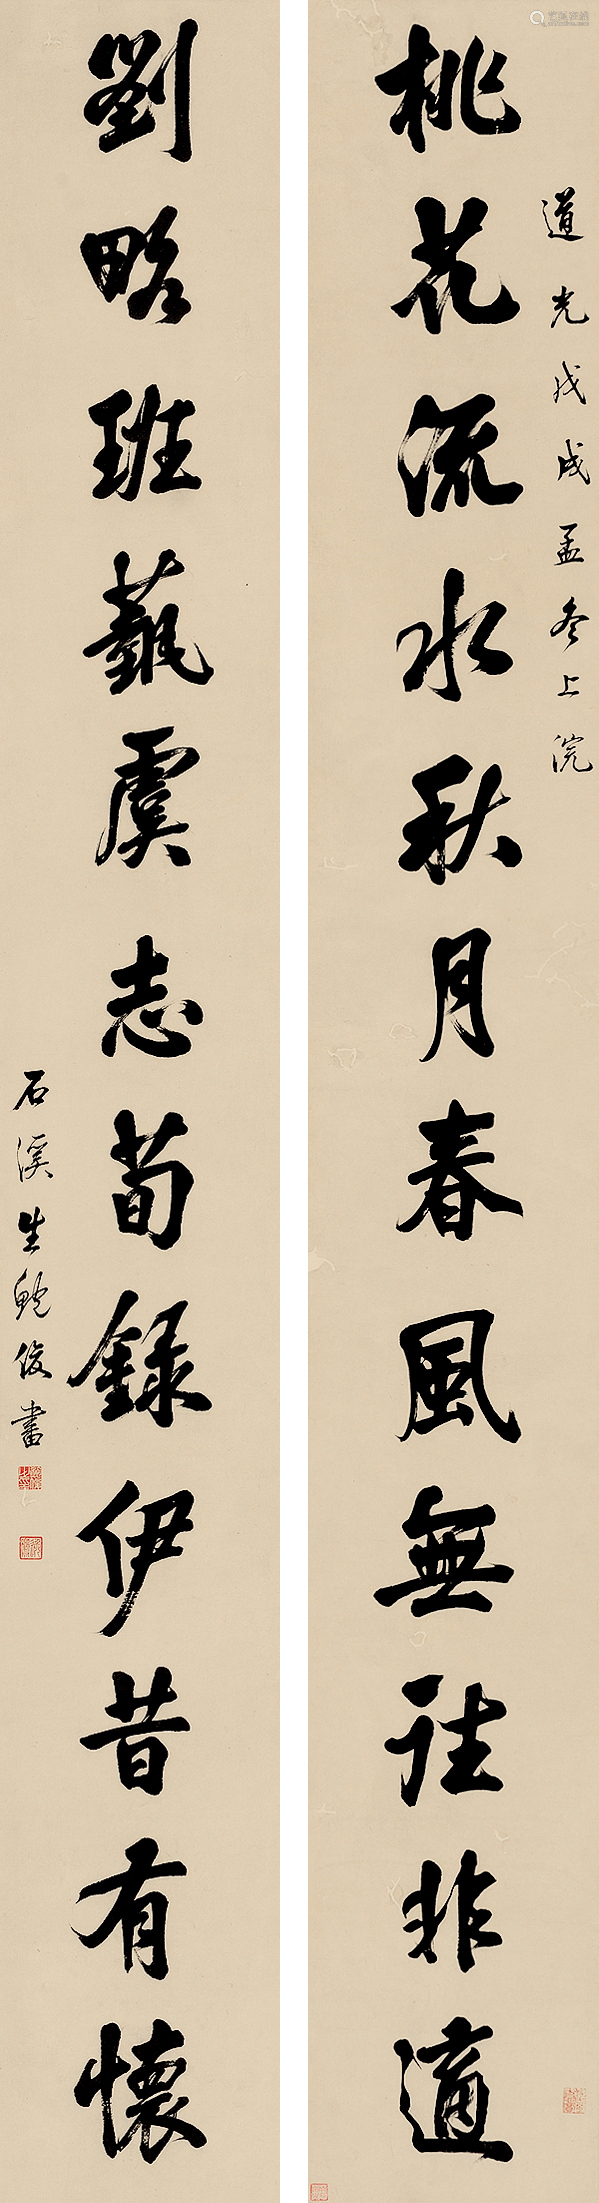 道光戊戌孟冬上浣
桃花流水秋月春風無往非適
劉略班藝虞志荀錄伊昔有懷
石溪生鮑俊書